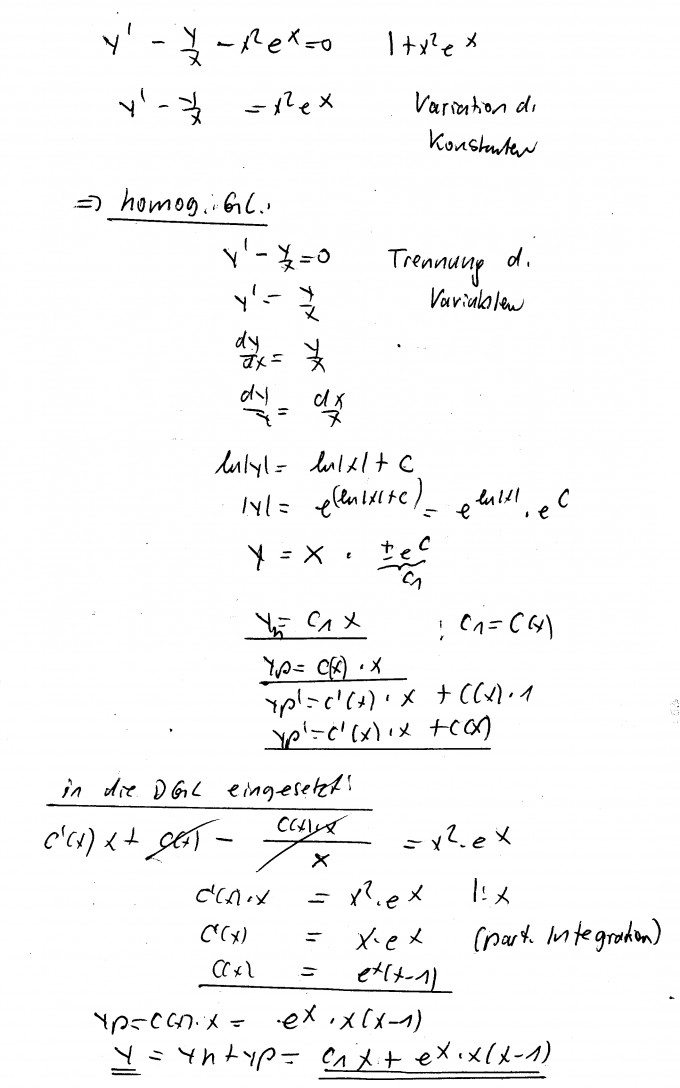 y' - y/x - x²e^x = 0   | + x²e^x
y' - y/x = x²e^x   Variation d.
Konstanten
⇒ homog. GL.:
y' - y/x = 0   Trennung d.
y' = y/x   Variablen
dy/dx = y/x
dy/y = dx/x
ln|y| = ln|x| + C
|y| = e^(ln|x|+C) = e^ln|x| · e^C
y = x · ±e^C
C₁
y_h = C₁ x   ; C₁ = C(x)
yp = C(x) · x
yp' = C'(x) · x + C(x) · 1
yp' = C'(x) · x + C(x)
in die DGL eingesetzt:
C'(x) x + C(x) - C(x)·x/x = x² · e^x
C'(x) · x = x² · e^x   |: x
C'(x) = x · e^x   (part. Integration)
C(x) = e^x(x-1)
yp = C(x) · x = e^x · x(x-1)
y = yh + yp = C₁ x + e^x · x(x-1)